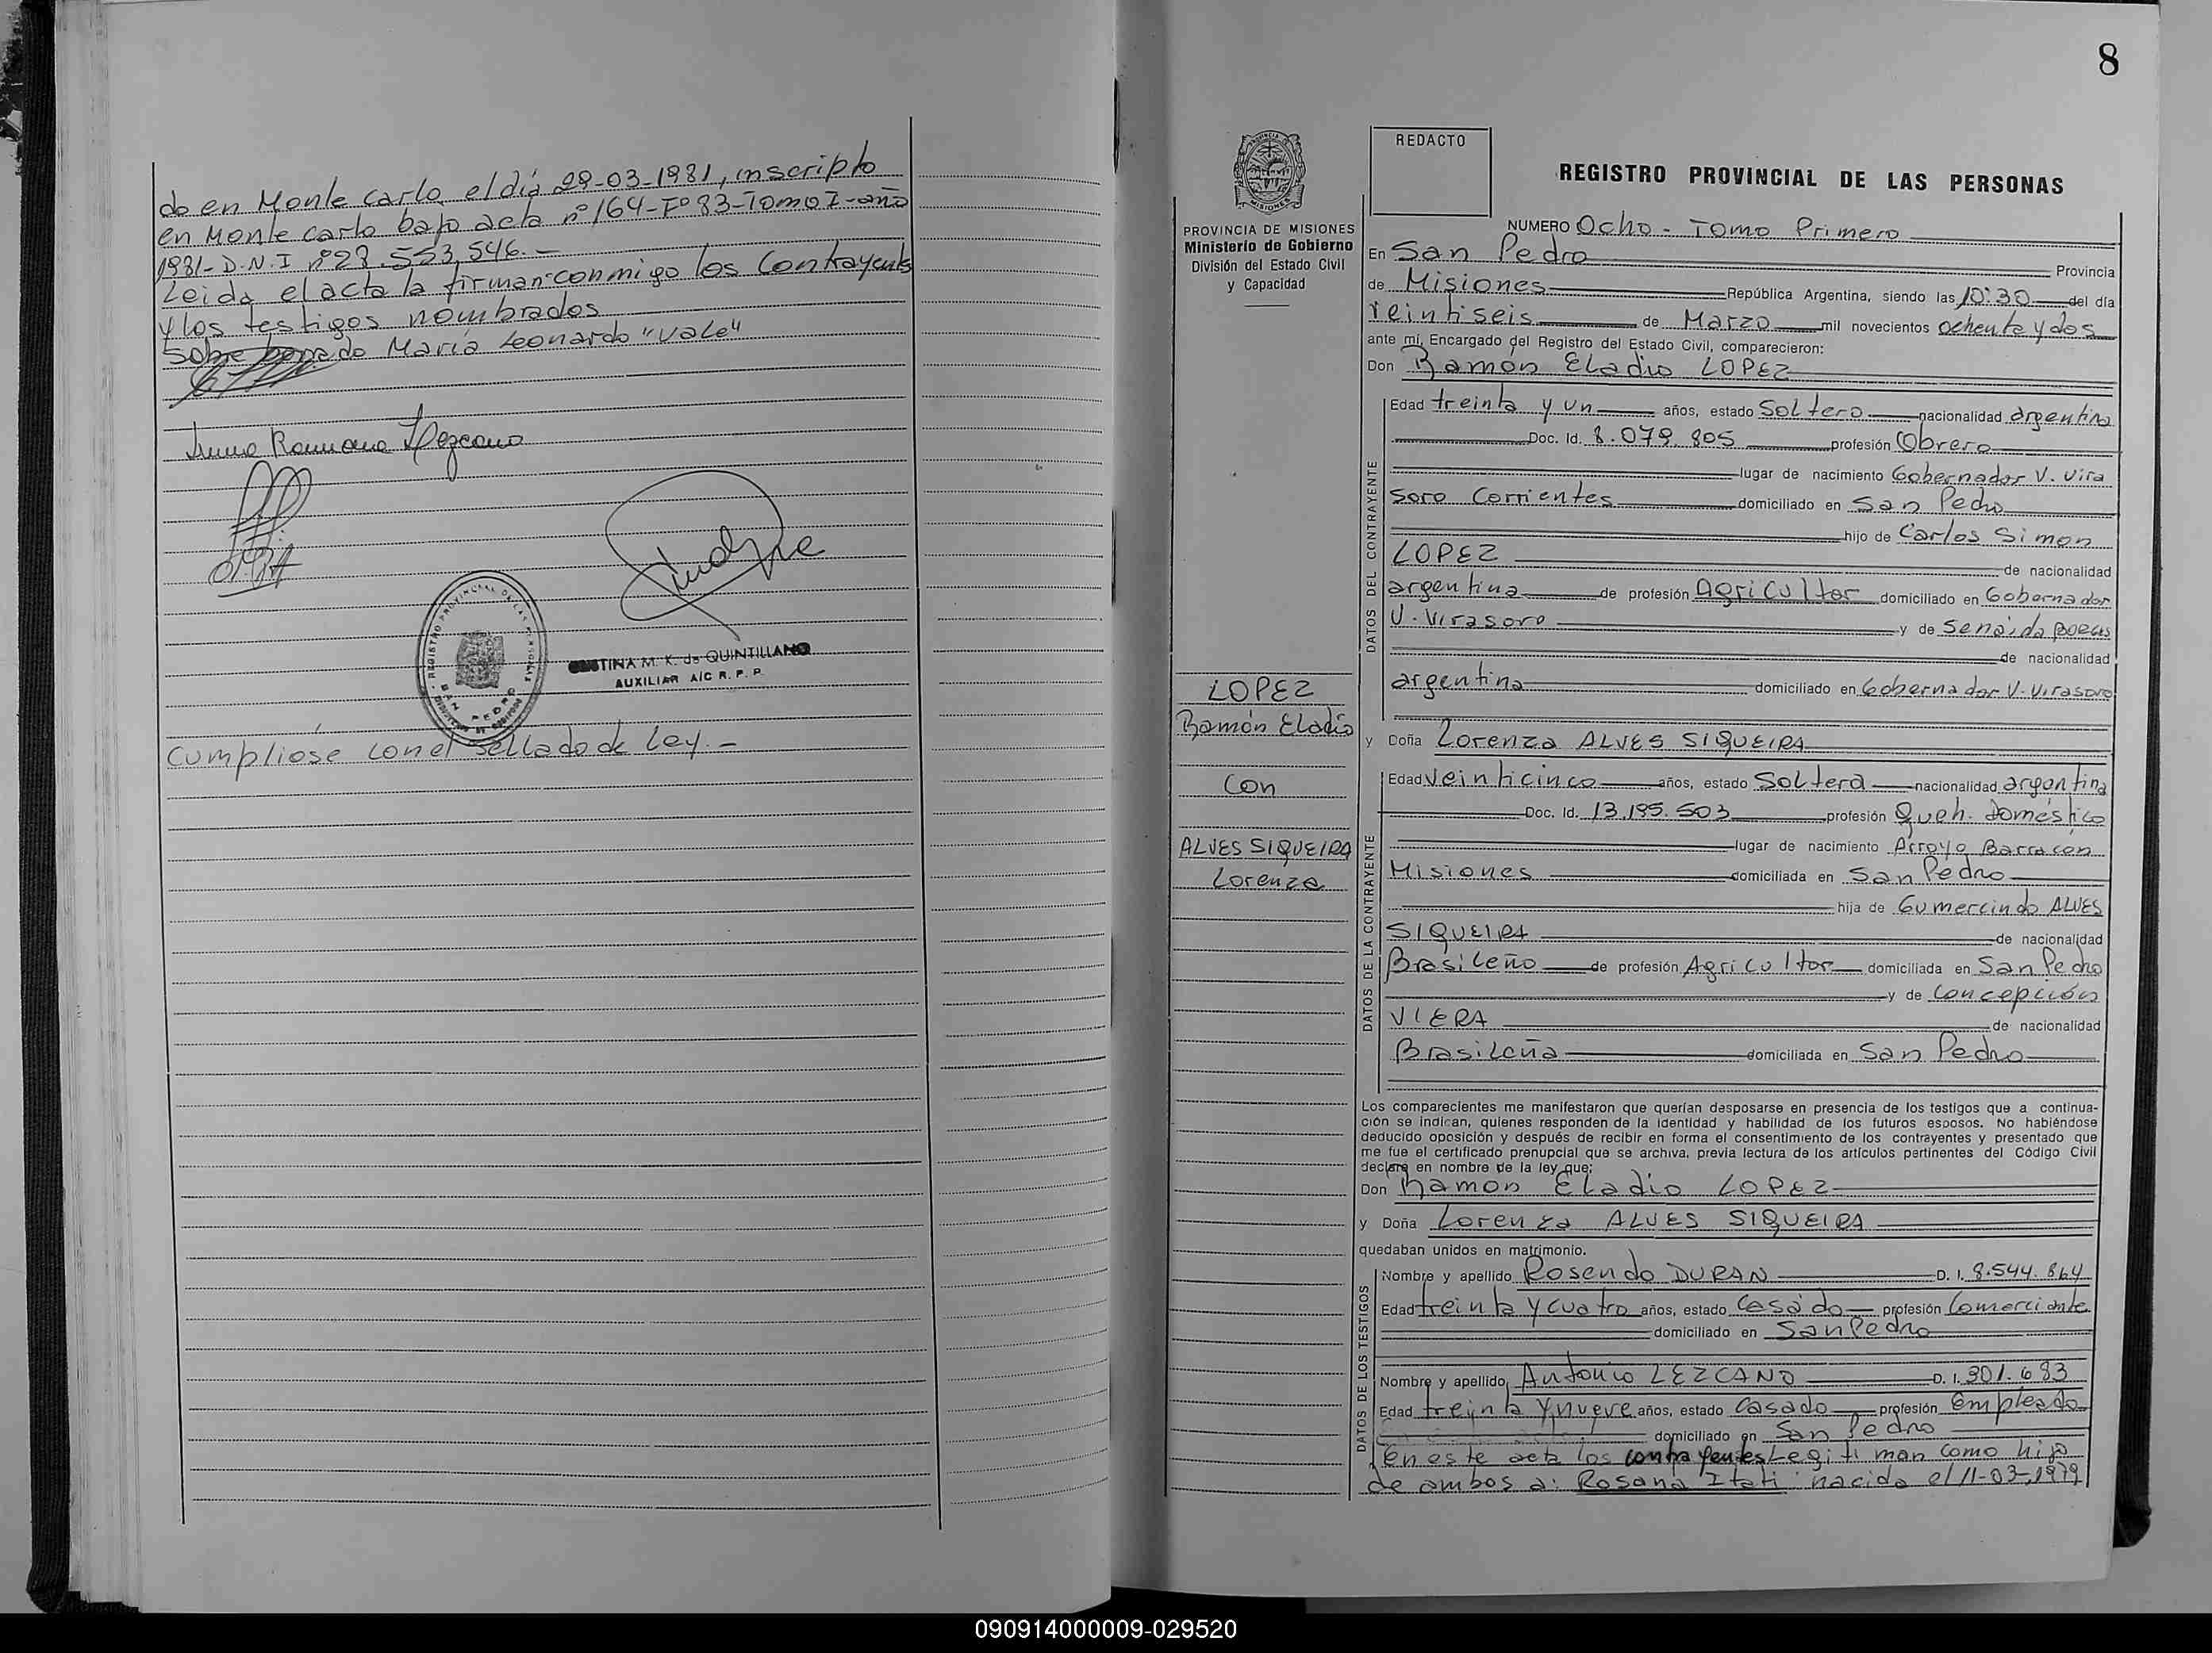 do en Monte Carlo el día 29-03-1981, inscripto
en Monte carlo bajo acta nº 164-Fº 83-Tomo I-año
1981- D.N.I nº 28.553.546.-
Leida el acta la firman conmigo los Contrayentes
y los testigos nombrados
Sobre borrado María Leonardo "vale"
CRISTINA M. K. de QUINTILLANO
AUXILIAR A/C R. P. P.
REGISTRO PROVINCIAL DE LAS PERSONAS
SAN PEDRO
Cumpliose con el sellado de Ley.-
8
PROVINCIA DE MISIONES
Ministerio de Gobierno
División del Estado Civil
y Capacidad
LOPEZ
Ramón Eladio
Con
ALVES SIQUEIRA
Lorenza
REDACTO
REGISTRO PROVINCIAL DE LAS PERSONAS
NUMERO Ocho - Tomo Primero
En San Pedro Provincia
de Misiones República Argentina, siendo las 10:30 del día
veintiseis de Marzo mil novecientos ochenta y dos
ante mí, Encargado del Registro del Estado Civil, comparecieron:
Don Ramón Eladio LOPEZ
DATOS DEL CONTRAYENTE
Edad treinta y un años, estado Soltero nacionalidad argentina
Doc. Id. 8.079.805 profesión Obrero
lugar de nacimiento Gobernador V. Vira
soro Corrientes domiciliado en San Pedro
hijo de Carlos Simon
LOPEZ de nacionalidad
argentina de profesión Agricultor domiciliado en Gobernador
V. Virasoro y de Senaida
de nacionalidad
argentina domiciliado en Gobernador V. Virasoro
y Doña Lorenza ALVES SIQUEIRA
DATOS DE LA CONTRAYENTE
Edad veinticinco años, estado Soltera nacionalidad argentina
Doc. Id. 13.195.503 profesión Queh. Doméstico
lugar de nacimiento Arroyo Barracon
Misiones domiciliada en San Pedro
hija de Gumercindo ALVES
SIQUEIRA de nacionalidad
Brasileño de profesión Agricultor domiciliada en San Pedro
y de Concepción
VIERA de nacionalidad
Brasileña domiciliada en San Pedro
Los comparecientes me manifestaron que querían desposarse en presencia de los testigos que a continua-
ción se indican, quienes responden de la identidad y habilidad de los futuros esposos. No habiéndose
deducido oposición y después de recibir en forma el consentimiento de los contrayentes y presentado que
me fue el certificado prenupcial que se archiva, previa lectura de los artículos pertinentes del Código Civil
declaro en nombre de la ley que:
Don Ramon Eladio LOPEZ
y Doña Lorenza ALVES SIQUEIRA
quedaban unidos en matrimonio.
DATOS DE LOS TESTIGOS
Nombre y apellido Rosendo DURAN D. I. 8.544.864
Edad treinta y cuatro años, estado Casado profesión Comerciante
domiciliado en San Pedro
Nombre y apellido Antonio LEZCANO D. I. 301.683
Edad treinta y nueve años, estado Casado profesión empleado
domiciliado en San Pedro
En este acta los contrayentes Legitiman como hija
de ambos a: Rosana Itati nacida el 11-03-1979
090914000009-029520